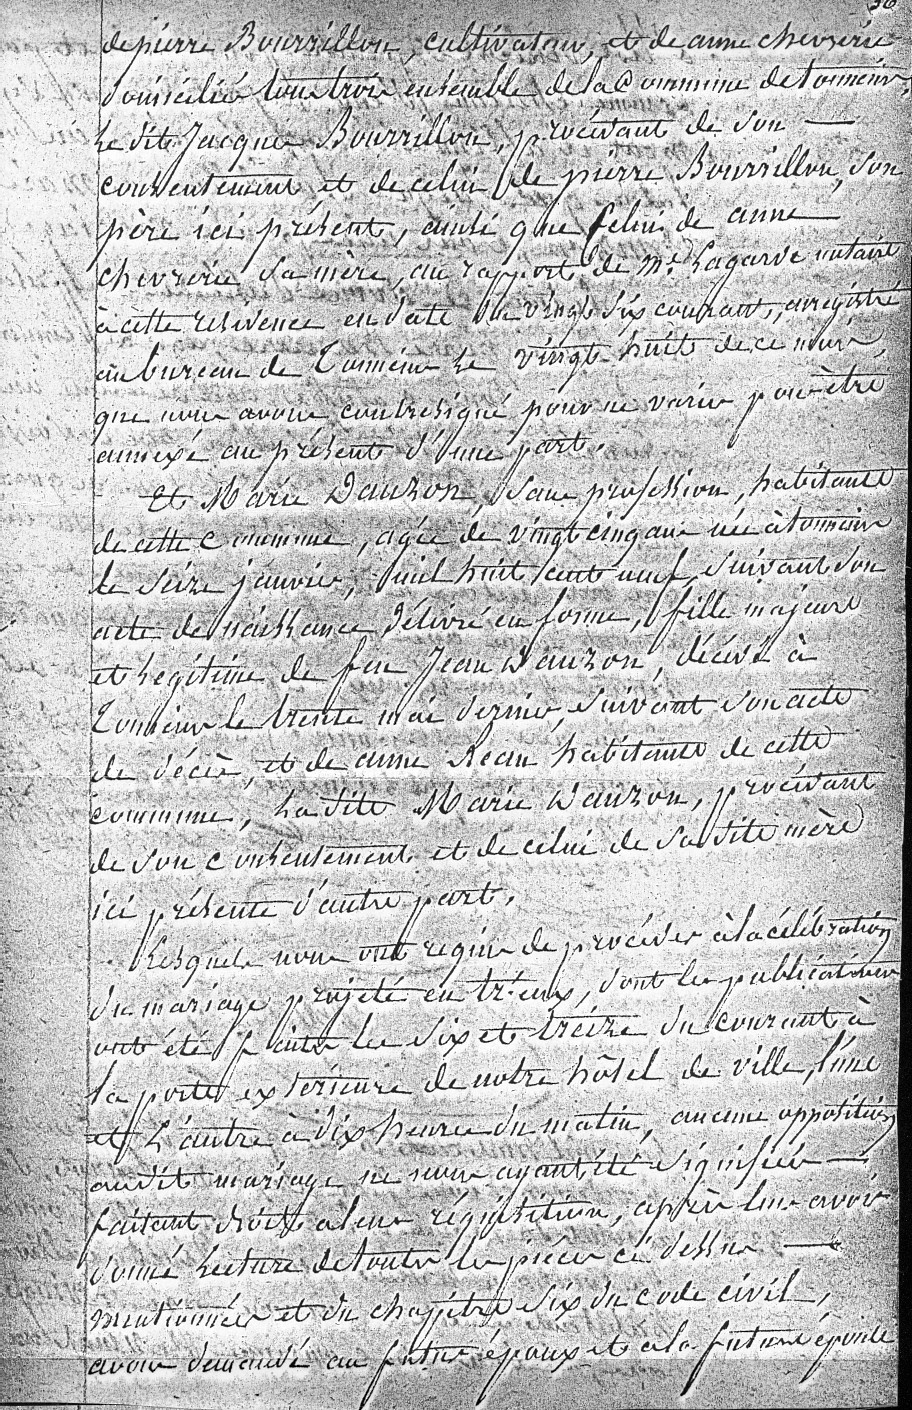 36
de pierre Bourrillon, cultivateur, et de anne chevrérie
domiciliés tous trois ensemble de la Commune de tonneins,
Le dit Jacques Bourrillon, procédant de son —
consentement et de celui de pierre Bourrillon, son
père ici présent, ainsi que celui de anne —
chevrérie sa mère, au rapport de Me. Lagarde notaire
à cette résidence en date du vingt six courant, enregistré
au bureau de Tonneins le vingt huit de ce mois,
que nous avons contresigné pour ne varier pour être
annexé au présent d'une part.
Et Marie Dauzon, sans profession, habitante
de cette Commune, agée de vingt cinq ans née à tonneins
le seize janvier, mil huit cent neuf, suivant son
acte de naissance délivré en forme, fille majeure
et légitime de feu Jean Dauzon, décédé à
Tonneins le trente mai dernier, suivant son acte
de décès, et de anne Rean habitante de cette
commune, La dite Marie Dauzon, procédant
de son consentement et de celui de sa dite mère
ici présente d'autre part.
Lesquels nous ont requis de procéder à la célébration
du mariage projeté entr'eux, dont les publications
ont été faites les six et treize du courant à
la porte extérieure de notre hôtel de ville, l'une
et L'autre à dix heures du matin, aucune opposition
audit mariage ne nous ayant été signifiée —
faisant droit a leur réquisition, après leur avoir
donné Lecture de toutes les pièces ci dessus —
mentionnées et du chapitre six du code civil,
avons demandé au futur époux et à la future épouse